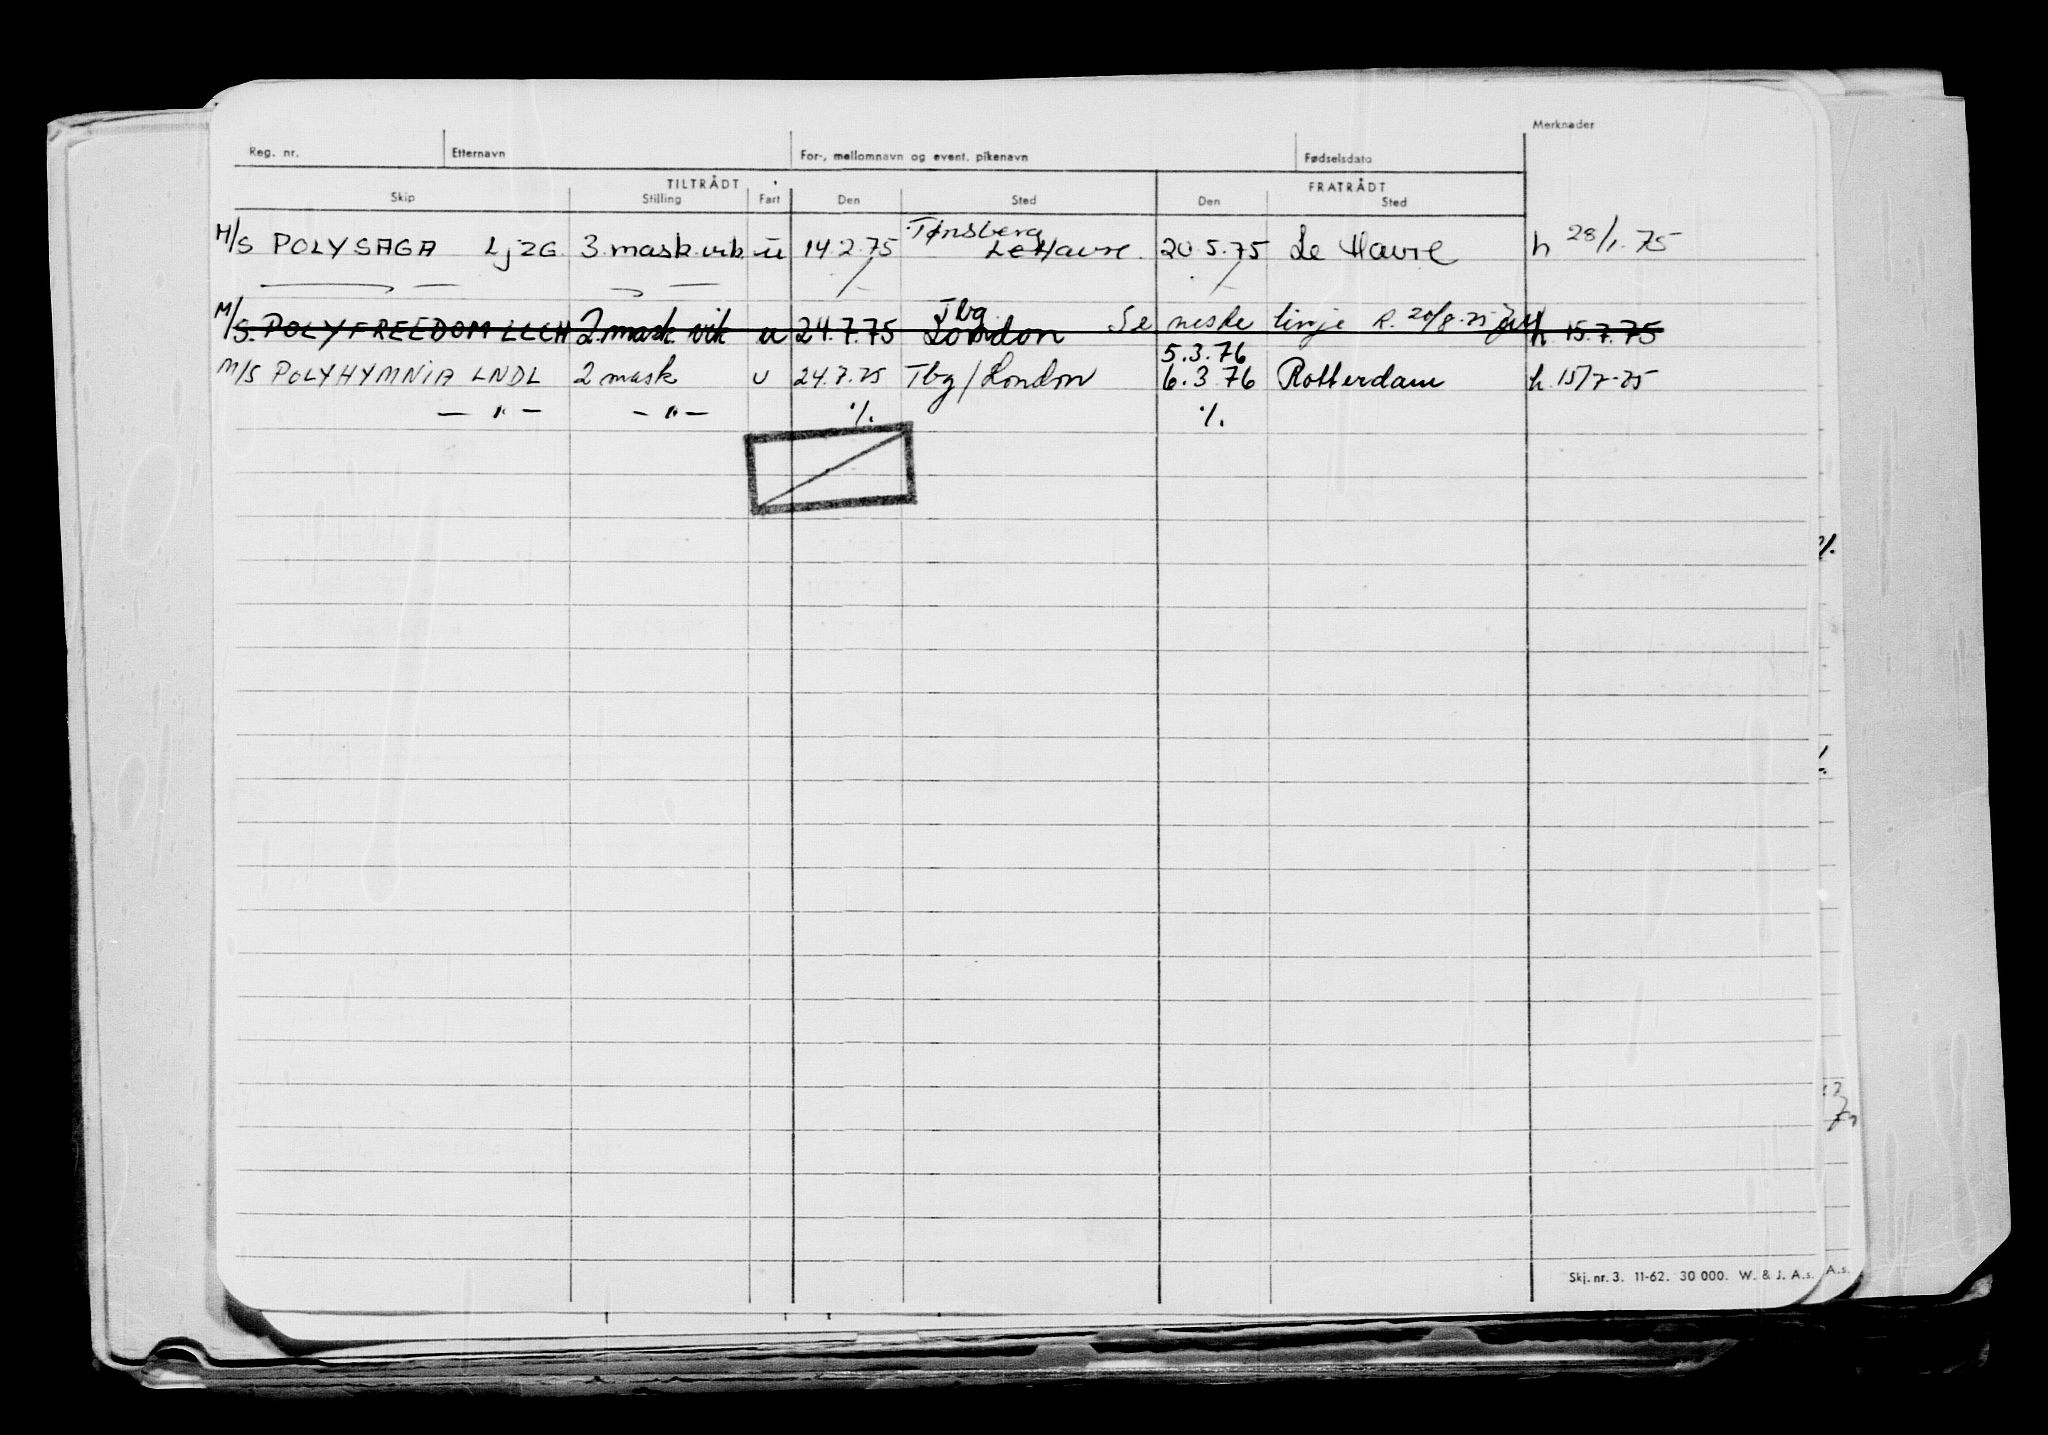 Merknader
Reg. nr. Etternavn For-, mellomnavn og event. pikenavn Fødselsdato
TILTRÅDT FRATRÅDT
Skip Stilling Fart Den Sted Den Sted
Tønsberg
M/S POLYSAGA LJZG 3. mask. vik. u 14.2.75 Le Havre. 20.5.75 Le Havre h 28/1. 75
./. ./.
Tbg.
M/S. POLYFREEDOM LLCH 2. mask. vik u 24.7.75 London Se neste linje R. 20/8.75 h. 15.7.75
5.3.76
M/S POLYHYMNIA LNDL 2 mask u 24.7.75 Tbg/London 6.3.76 Rotterdam h. 15/7-75
— " — — " — ./. ./.
Skj. nr. 3. 11-62. 30 000. W. & J. A.s. A.s.